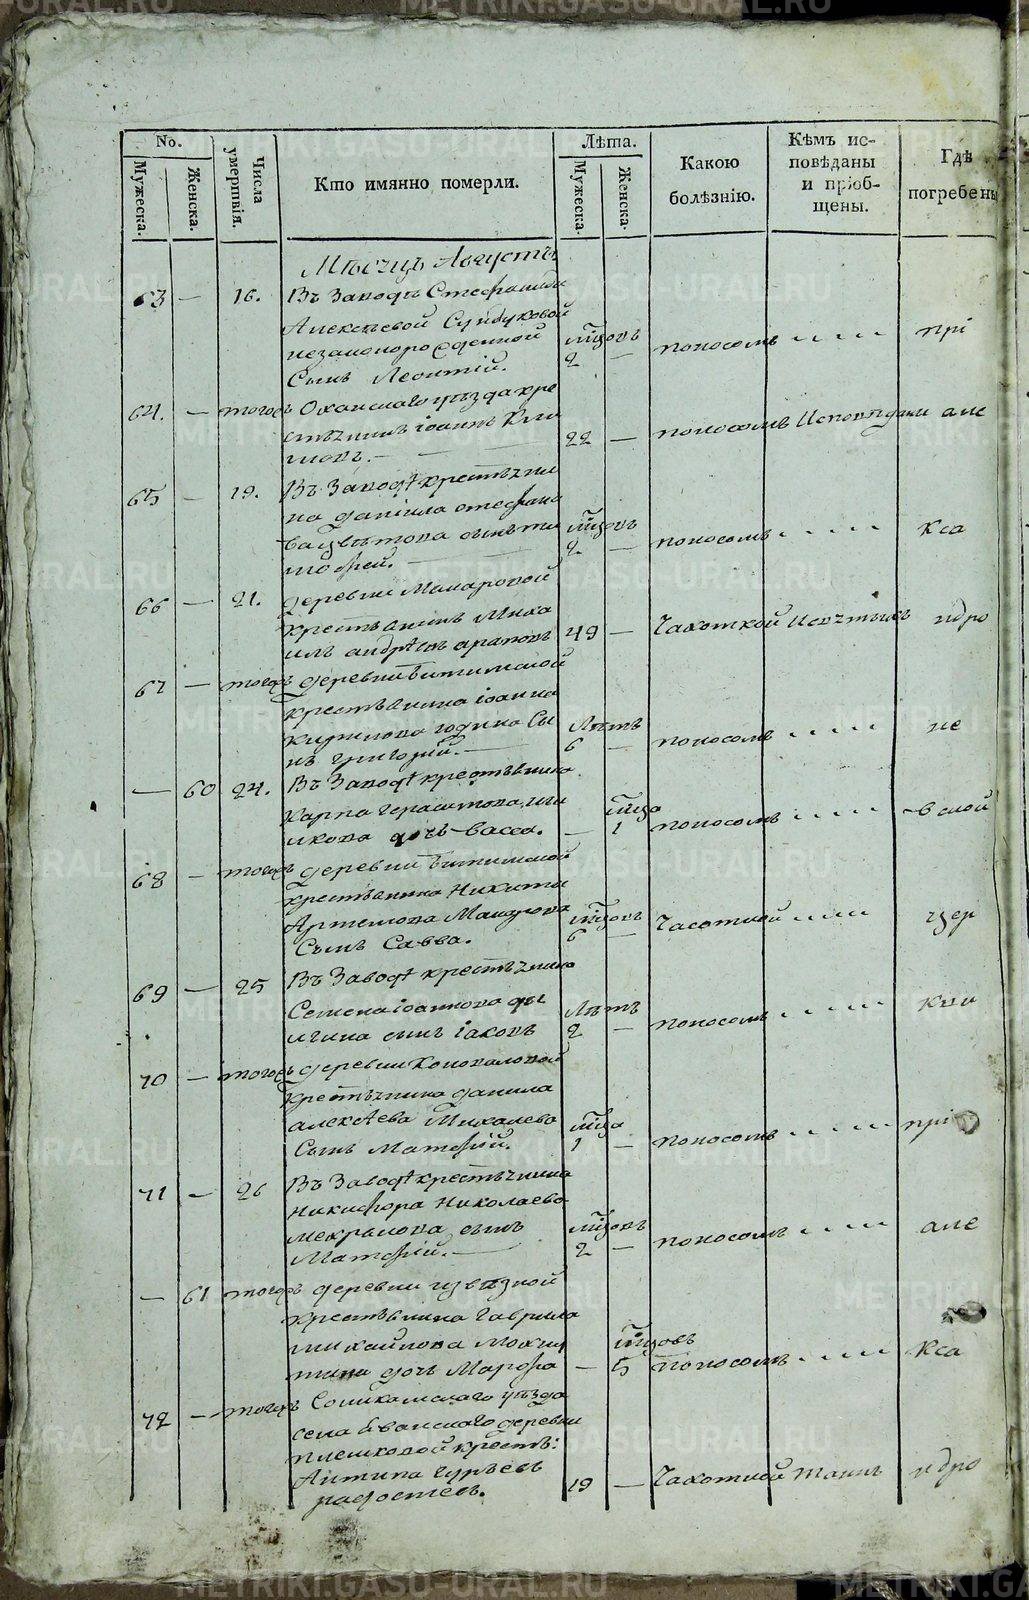 No.
Мужеска.
Женска.
Числа умертвія.
Кто имянно померли.
Лѣта.
Мужеска.
Женска.
Какою болѣзнію.
Кѣмъ исповѣданы и пріобщены.
Гдѣ погребены
Мѣсяцъ Августъ
63 — 16. Въ Заводѣ Стефаниды
Алексѣевой Сундуковой
незаконорожденной годовъ
Сынъ Леонтій. 2 — поносомъ прі
64. — тогожъ Оханскаго уѣзда кре
стьянинъ іоаннъ Кли
мовъ. 22 — поносомъ Исповѣданъ але
65 — 19. Въ Заводѣ крестьяни
на даніила стефано
ва сынъ ти годовъ
мофей. 2 — поносомъ кса
66 — 21. деревни Макаровой
крестьянинъ Миха
илъ андрѣевъ араповъ 49 — Чахоткой ндро
67 — тогожъ деревни Битимской
крестьянина іоанна
Кирилова година Сы Лѣтъ
нъ григорій. 6 — поносомъ не
— 60 24. Въ Заводѣ крестьянина
карпа герасимова ши года
икова дочь васса. — 1 поносомъ вской
68 — тогожъ деревни Битимской
крестьянина Никиты
Артемова Макарова годовъ
Сынъ Савва. 6 — Чахоткой цер
69 — 25 Въ Заводѣ крестьянина
Семена іоаннова Лѣтъ
сынъ іаковъ 2 — поносомъ кви
70 — тогожъ деревни Коноваловой
крестьянина данила
алексѣева Михалева года
Сынъ Матфій. 1 — поносомъ прі
71 — 26 Въ Заводѣ крестьянина
Никифора Николаева
мокрынова сынъ годовъ
Матфій. 2 — поносомъ але
— 61 тогожъ деревни извѣзной
крестьянина гаврила
михайлова годовъ
дочь Марфа — 5 поносомъ кса
72 — тогожъ Соликамскаго уѣзда
села деревни
плешковой крестьі:
Антипа гурьевъ
19 — Чахоткой ндро
METRIKI.GASO-URAL.RU